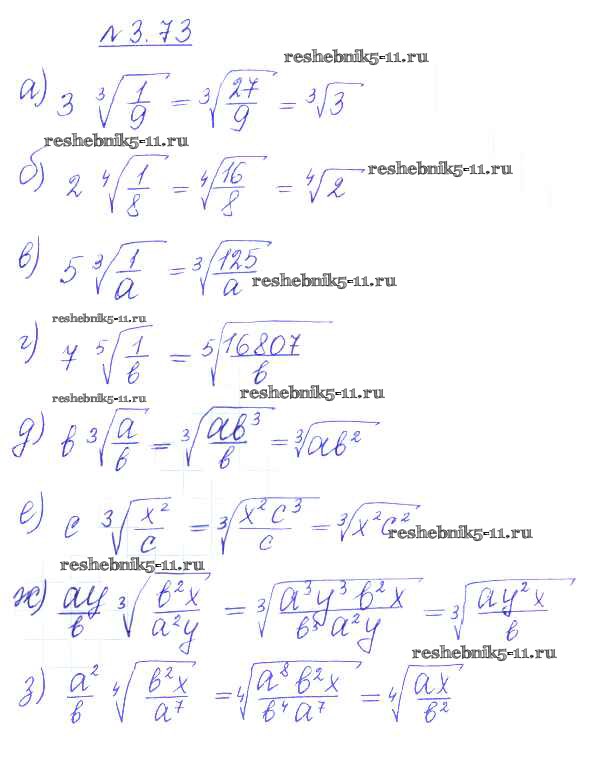 № 3.73
reshebnik5-11.ru
а) 3 ∛(1/9) = ∛(27/9) = ∛3
reshebnik5-11.ru
б) 2 ∜(1/8) = ∜(16/8) = ∜2
reshebnik5-11.ru
в) 5 ∛(1/a) = ∛(125/a)
reshebnik5-11.ru
reshebnik5-11.ru
г) 7 ⁵√(1/b) = ⁵√(16807/b)
reshebnik5-11.ru
reshebnik5-11.ru
д) b ∛(a/b) = ∛(ab³/b) = ∛(ab²)
е) c ∛(x²/c) = ∛(x²c³/c) = ∛(x²c²)
reshebnik5-11.ru
reshebnik5-11.ru
ж) ay/b ∛(b²x/a²y) = ∛(a³y³b²x/b³a²y) = ∛(ay²x/b)
reshebnik5-11.ru
з) a²/b ∜(b²x/a⁷) = ∜(a⁸b²x/b⁴a⁷) = ∜(ax/b²)